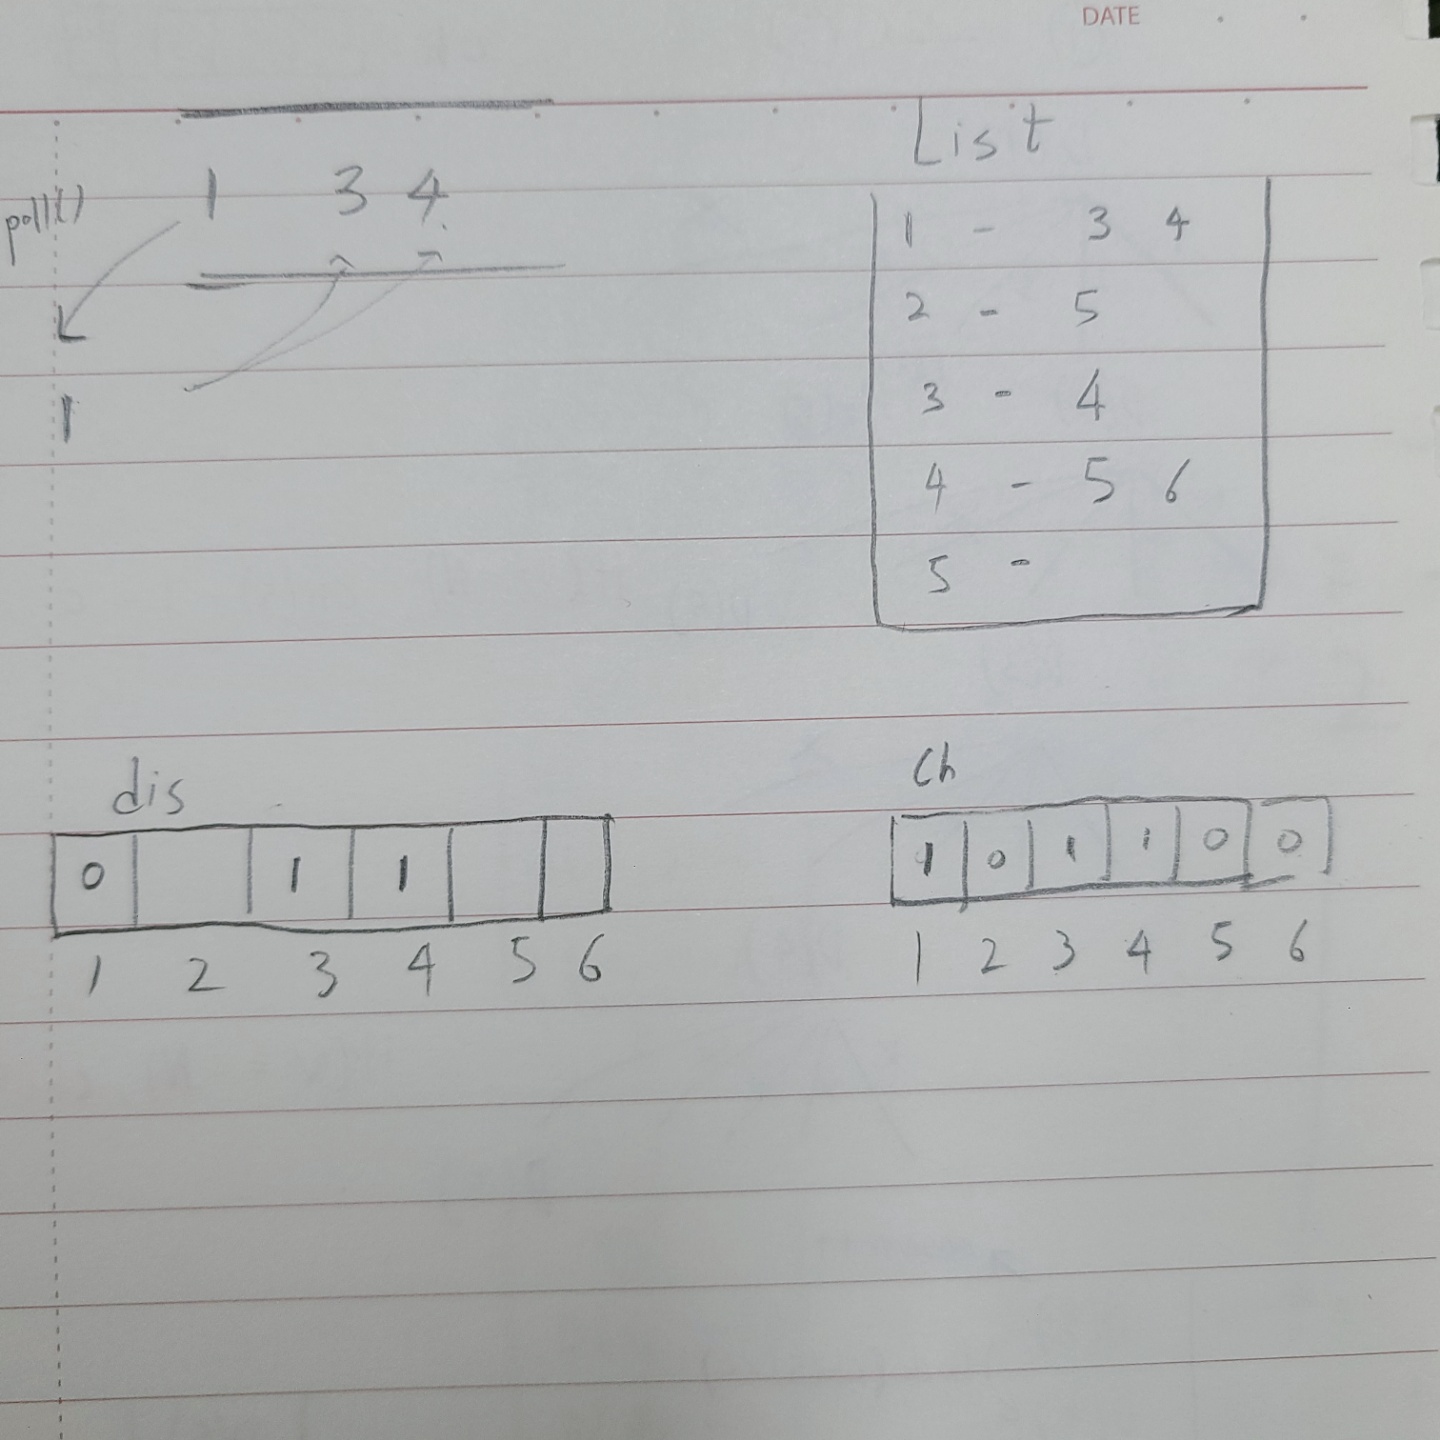 DATE
List
poll()
1 3 4
1
1 - 3 4
2 - 5
3 - 4
4 - 5 6
5 -
dis
0 1 1
1 2 3 4 5 6
Ch
1 0 1 1 0 0
1 2 3 4 5 6